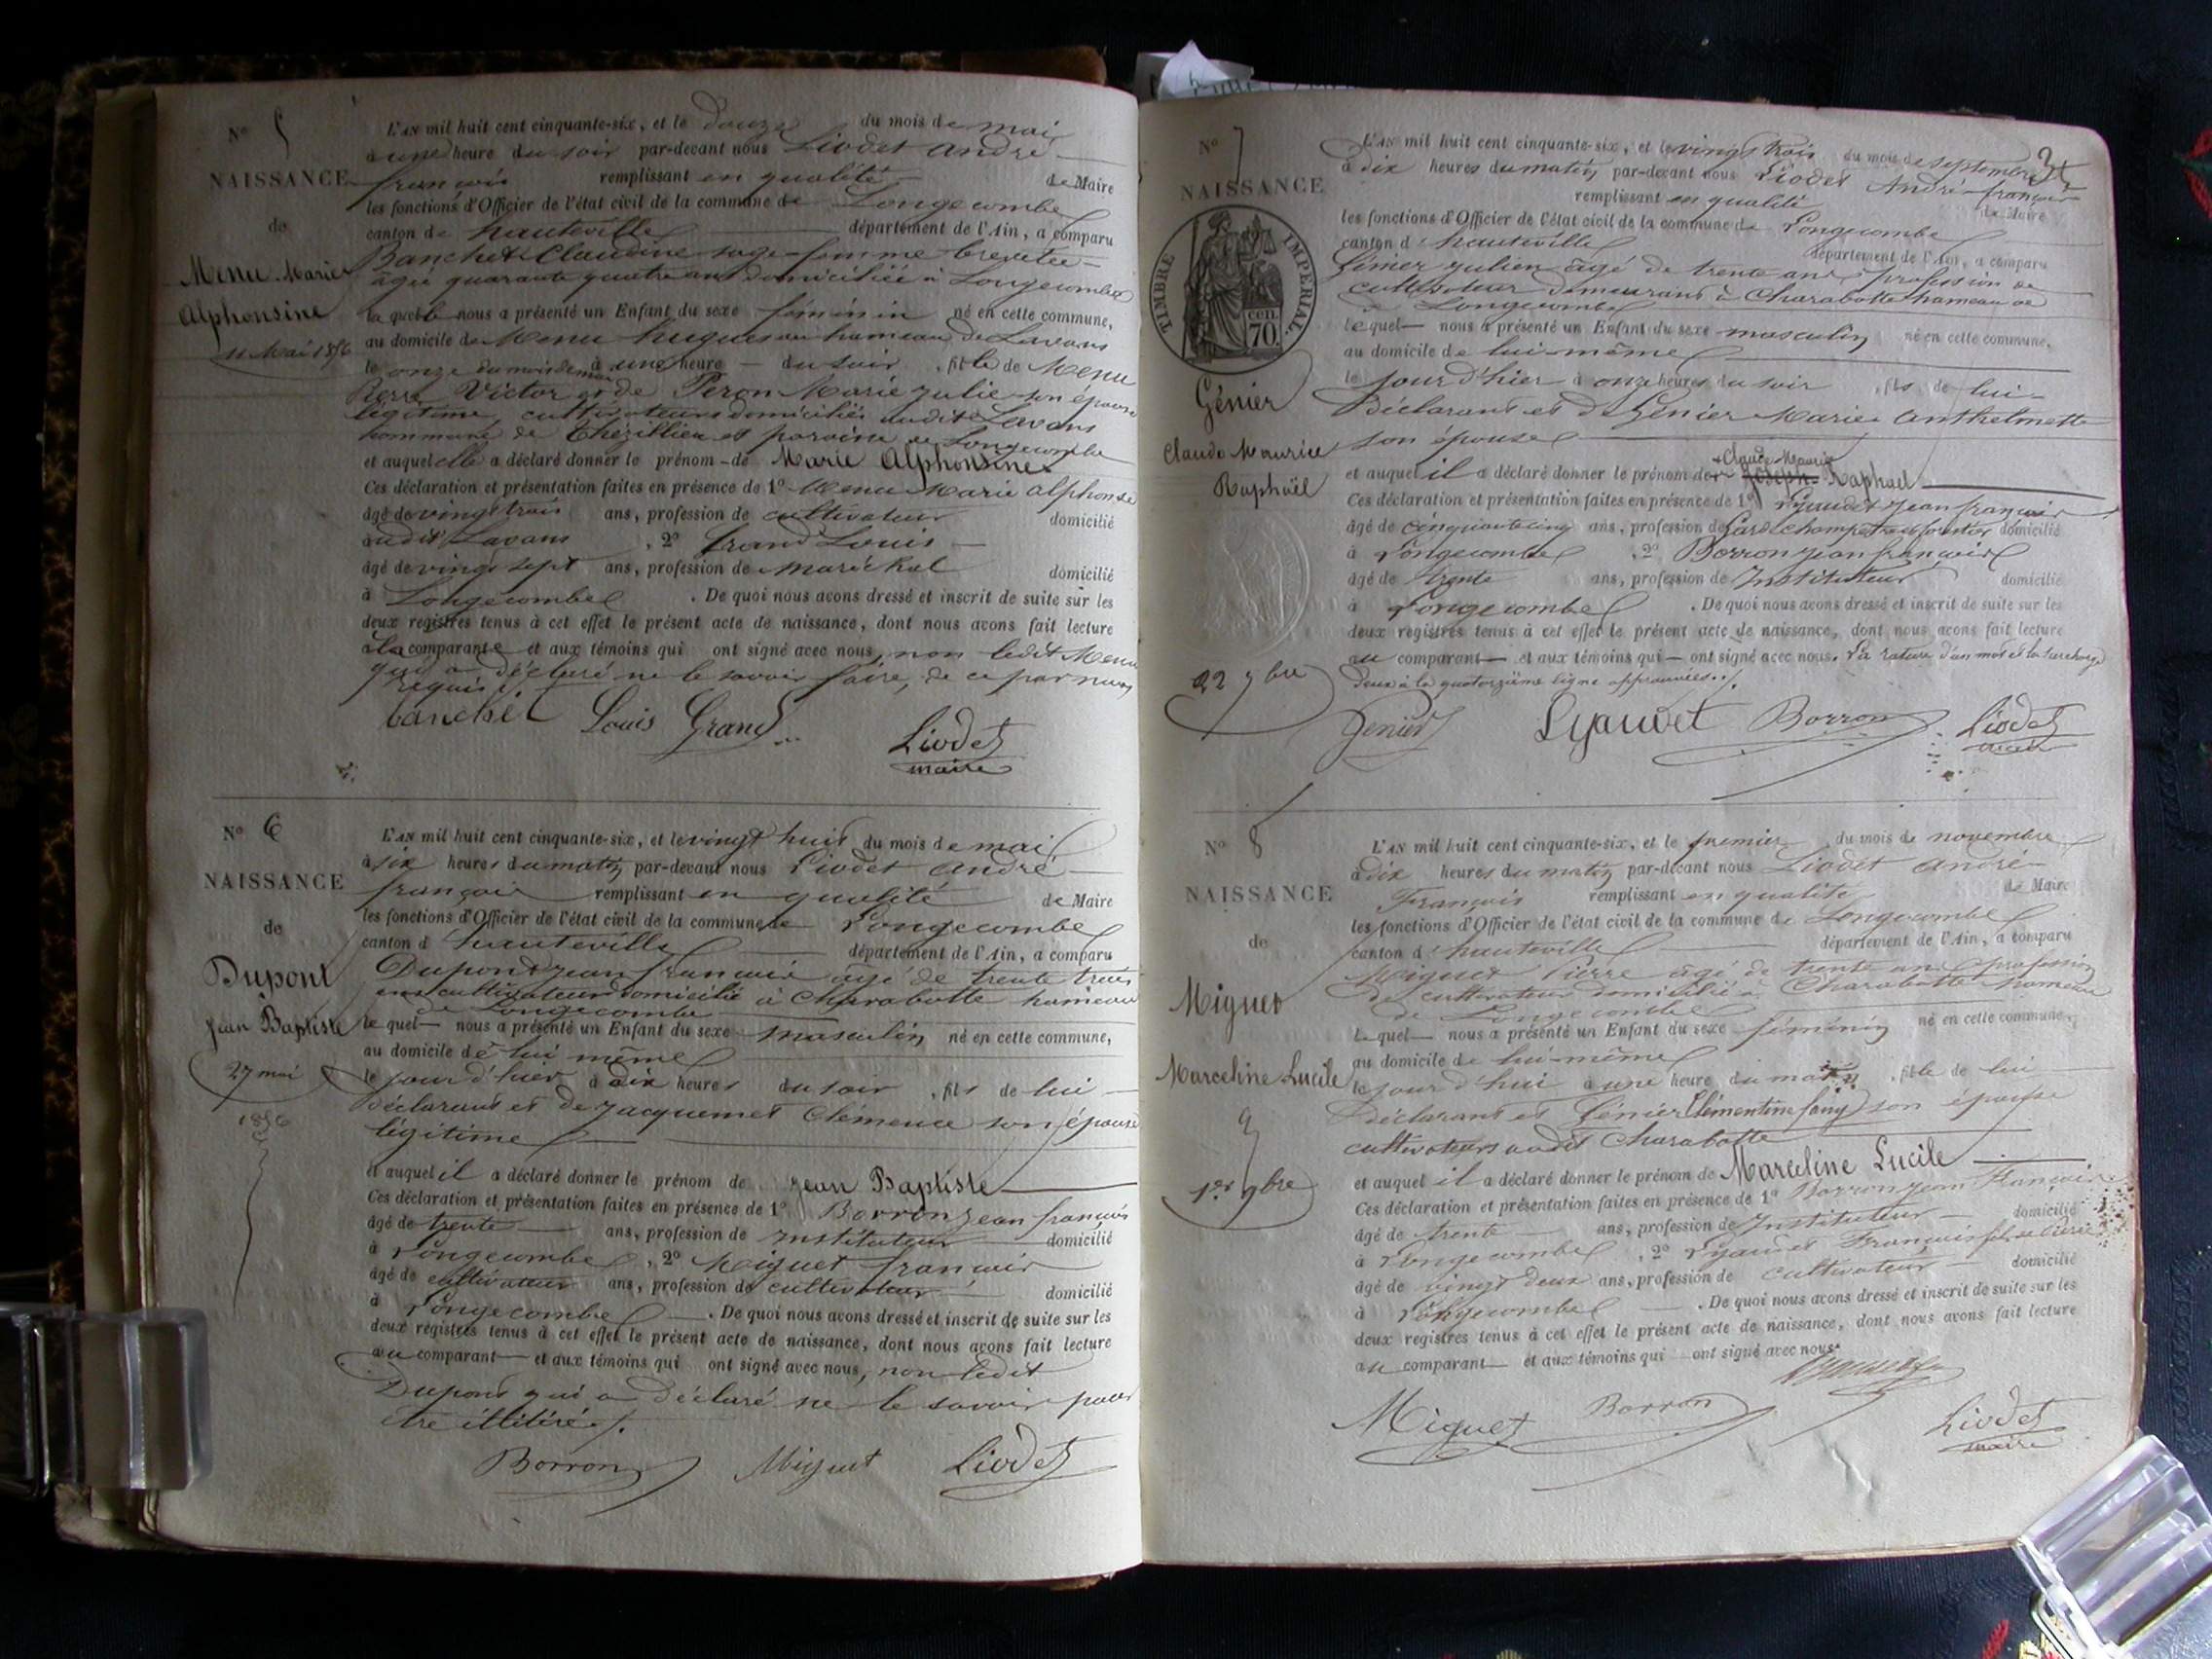 N° 5
NAISSANCE
de
Menu Marie
Alphonsine
11 Mai 1856
L'AN mil huit cent cinquante-six, et le douze du mois de mai
à une heure du soir par-devant nous Liodet andré
françois remplissant en qualité de Maire
les fonctions d'Officier de l'état civil de la commune de Longecombe
canton de hauteville département de l'Ain, a comparu
Banchet Claudine sage-femme brevetée
âgée quarante quatre ans domiciliée à Longecombe
la quelle nous a présenté un Enfant du sexe féminin né en cette commune,
au domicile de Menu hugues au hameau de Lavans
le onze du mois de mai à une heure du soir , fille de Menu
Pierre Victor et de Peron Marie julie son épouse
légitime, cultivateurs domiciliés audit Lavans
commune de Thézillieu et paroisse de Longecombe
et auquel elle a déclaré donner le prénom de Marie Alphonsine
Ces déclaration et présentation faites en présence de 1° Menu Marie alphonse
âgé de vingt trois ans, profession de cultivateur domicilié
audit Lavans , 2° Grand Louis
âgé de vingt sept ans, profession de Maréchal domicilié
à Longecombe . De quoi nous avons dressé et inscrit de suite sur les
deux registres tenus à cet effet le présent acte de naissance, dont nous avons fait lecture
à la comparante et aux témoins qui ont signé avec nous, non ledit Menu
qui a déclaré ne le savoir faire, de ce par nous
requis ./.
banchet Louis Grand Liodet
maire
N° 6
NAISSANCE
de
Dupont
Jean Baptiste
27 mai
1856
L'AN mil huit cent cinquante-six, et le vingt huit du mois de mai
à six heures du matin par-devant nous Liodet andré
françois remplissant en qualité de Maire
les fonctions d'Officier de l'état civil de la commune de Longecombe
canton d'hauteville département de l'Ain, a comparu
Dupont jean françois âgé de trente trois
ans cultivateur domicilié à Charabotte hameau
de Longecombe
le quel nous a présenté un Enfant du sexe masculin né en cette commune,
au domicile de lui même
le jour d'hier à dix heures du soir , fils de lui
déclarant et de jacquemet Clémence son épouse
légitime
et auquel il a déclaré donner le prénom de jean Baptiste
Ces déclaration et présentation faites en présence de 1° Borron jean françois
âgé de trente ans, profession de Instituteur domicilié
à Longecombe , 2° Miguet françois
âgé de cultivateur ans, profession de cultivateur domicilié
à Longecombe . De quoi nous avons dressé et inscrit de suite sur les
deux registres tenus à cet effet le présent acte de naissance, dont nous avons fait lecture
au comparant et aux témoins qui ont signé avec nous, non ledit
Dupont qui a déclaré ne le savoir pour
être illitéré ./.
Borron Miguet Liodet
N° 7
NAISSANCE
TIMBRE IMPERIAL
70 cen
Génier
Claude Maurice
Raphaël
22 7bre
3
L'AN mil huit cent cinquante-six, et le vingt trois du mois de septembre
à dix heures du matin par-devant nous Liodet André françois
remplissant en qualité de Maire
les fonctions d'Officier de l'état civil de la commune de Longecombe
canton d'hauteville département de l'Ain, a comparu
Génier julien âgé de trente ans profession de
cultivateur demeurant à Charabotte hameau de
Longecombe
le quel nous a présenté un Enfant du sexe masculin né en cette commune,
au domicile de lui-même
le jour d'hier à onze heures du soir , fils de lui-
déclarant et de Génier Marie Anthelmette
son épouse
et auquel il a déclaré donner le prénom de Claude Maurice Joseph Raphael
Ces déclaration et présentation faites en présence de 1° Lyaudet jean françois
âgé de cinquante cinq ans, profession de Garde champetre et forestier domicilié
à Longecombe , 2° Borron jean françois
âgé de trente ans, profession de Instituteur domicilié
à Longecombe . De quoi nous avons dressé et inscrit de suite sur les
deux registres tenus à cet effet le présent acte de naissance, dont nous avons fait lecture
au comparant et aux témoins qui ont signé avec nous. La rature d'un mot et la surcharge
deux à la quatorzième ligne approuvées ./.
Genier Lyaudet Borron Liodet
maire
N° 8
NAISSANCE
de
Miguet
Marceline Lucile
1er 9bre
L'AN mil huit cent cinquante-six, et le premier du mois de novembre
à dix heures du matin par-devant nous Liodet andré
François remplissant en qualité de Maire
les fonctions d'Officier de l'état civil de la commune de Longecombe
canton d'hauteville département de l'Ain, a comparu
Miguet Pierre âgé de trente ans profession
de cultivateur domicilié à Charabotte hameau
de Longecombe
le quel nous a présenté un Enfant du sexe féminin né en cette commune,
au domicile de lui-même
le jour d'hui à une heure du matin , fille de lui
déclarant et Génier Clémentine fany son épouse
cultivateurs audit Charabotte
et auquel il a déclaré donner le prénom de Marceline Lucile
Ces déclaration et présentation faites en présence de 1° Borron jean François
âgé de trente ans, profession de Instituteur domicilié
à Longecombe , 2° Lyaudet François fils de Pierre
âgé de vingt deux ans, profession de cultivateur domicilié
à Longecombe . De quoi nous avons dressé et inscrit de suite sur les
deux registres tenus à cet effet le présent acte de naissance, dont nous avons fait lecture
au comparant et aux témoins qui ont signé avec nous.
Miguet Borron Liodet
maire